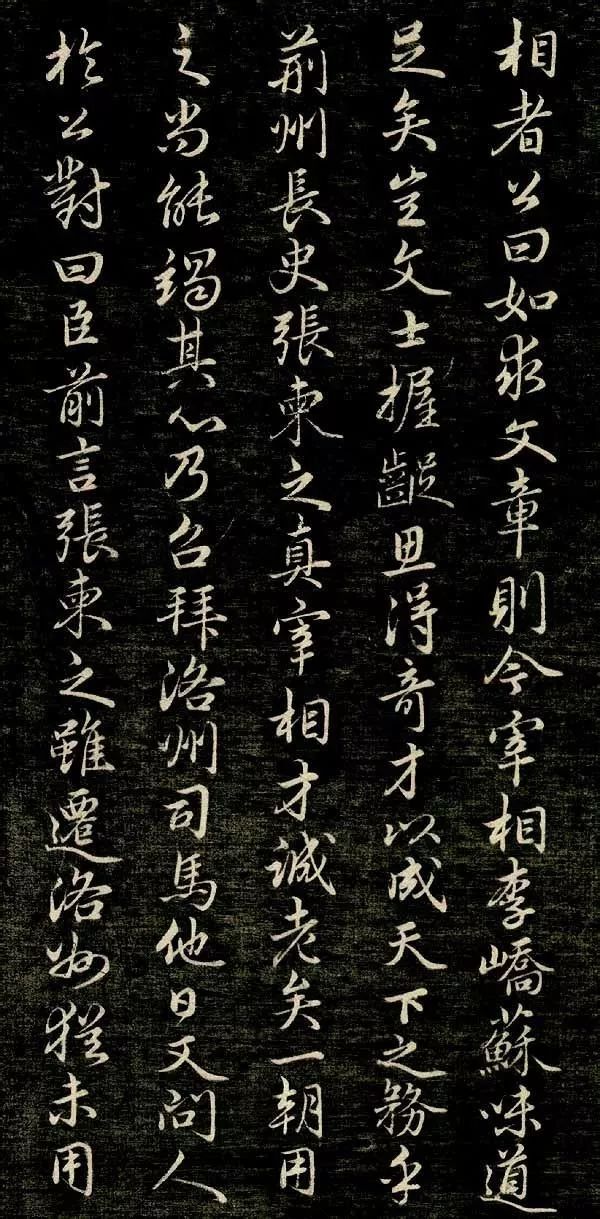 相者公曰如求文章則今宰相李嶠蘇味道
足矣豈文士握齪思得奇才以成天下之務乎
荊州長史張柬之真宰相才誠老矣一朝用
之尚能竭其心乃召拜洛州司馬他日又問人
於公對曰臣前言張柬之雖遷洛州猶未用